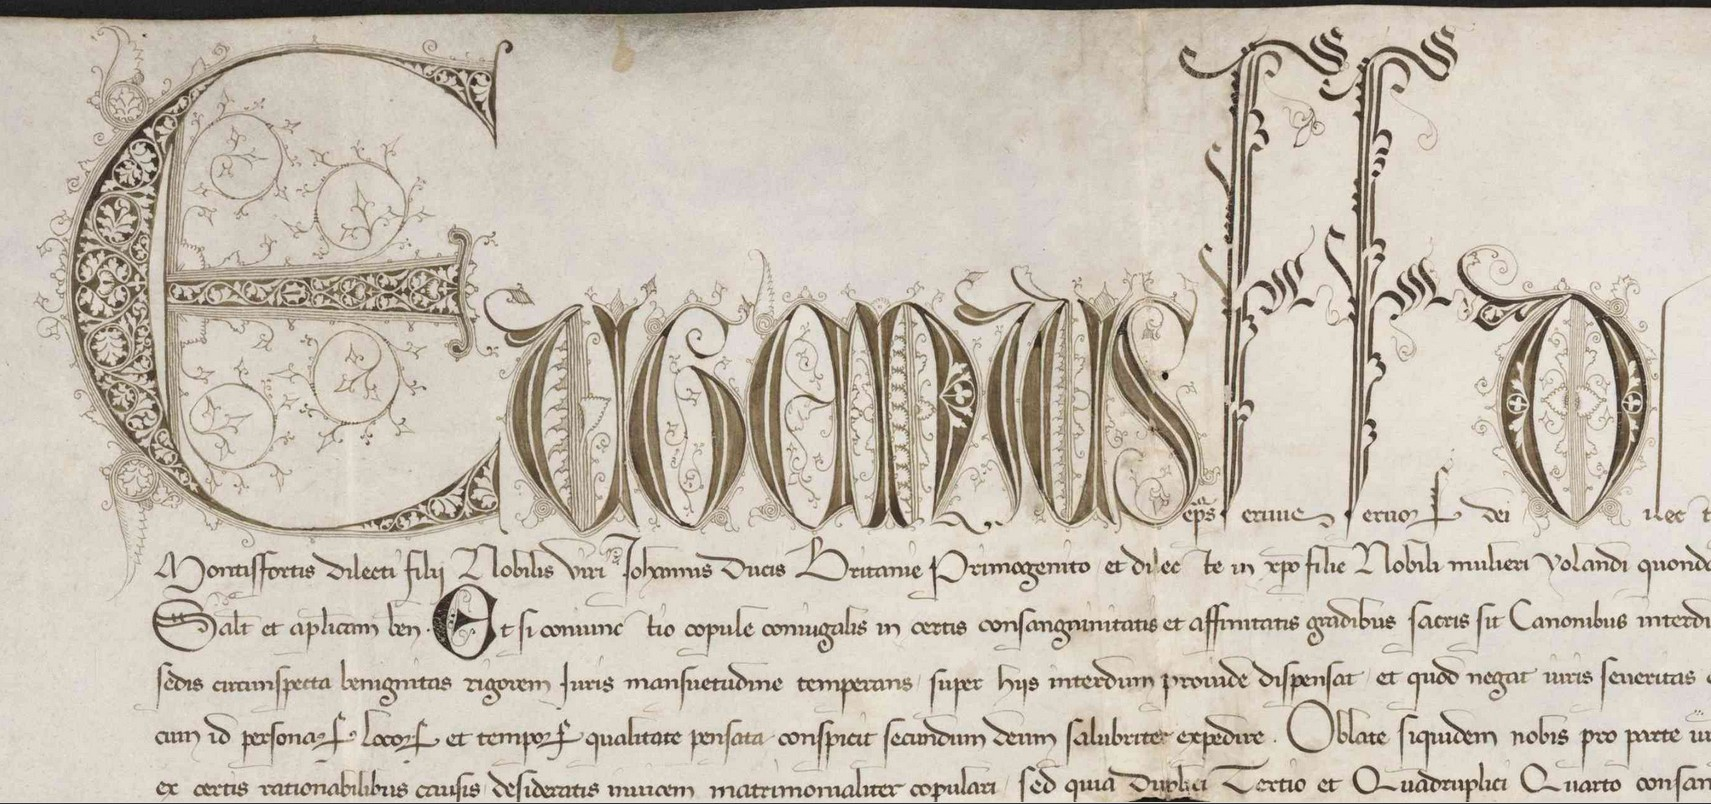 Eugenius eps seruus seruor dei D
Montisfortis dilecti filij Nobilis viri Johannis Ducis Britanie Primogenito et dilec te in xpo filie Nobili mulieri Yolandi quonda
Salt et aplicam ben. Et si coniunc tio copule coniugalis in certis consanguinitatis et affinitatis gradibus sacris sit Canonibus interdi
sedis circunspecta benignitas rigorem Juris mansuetudine temperans super hijs interdum prouide dispensat et quod negat iuris seueritas
cum id personar locor et tempor qualitate pensata conspicit secundum deum salubriter expedire. Oblate siquidem nobis pro parte
ex certis rationabilibus causis desideratis inuicem matrimonialiter copulari sed quia Duplici Tertio et Quadruplici Quarto consan